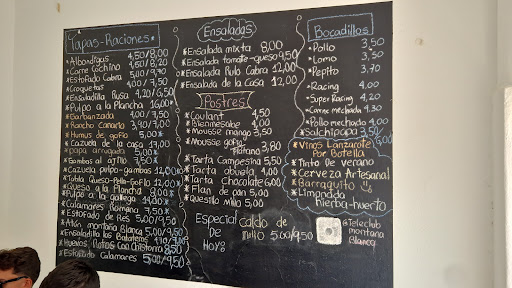 Tapas-Raciones
*Albondigas 4,50/8,00
*Carne Cochino 4,50/8,20
*Estofado Cabra 5,00/9,90
*Croquetas 4,00/7,50
*Ensaladilla Rusa 4,20/6,50
*Pulpo a la Plancha 16,00
*Garbanzada 4,00/7,50
*Rancho Canario 3,90/7,00
*Humus de gofio 5,00
*papa arrugada 5,00
*Gambas al ajillo 7,50
*Cazuela de la casa 17,00
*Cazuela pulpo-gambas 12,00
*Tabla Queso-Pella-Gofio 12,00
*Queso a la Plancha 8,00
*Pulpo a la gallega
*Calamares Romana 7,50
*Estofado de Res 5,00/9,50
*Atún montaña Blanca 5,00/9,50
*Ensaladilla los Batatems
*Huevos Rotos con Chistorra 8,50
*Estofado Calamares 5,00/9,50
Ensaladas
*Ensalada mixta 8,00
*Ensalada tomate-queso 9,50
*Ensalada Rulo Cabra 12,00
*Ensalada de la Casa 12,00
Postres
*Coulant 4,50
*Bienmesabe 4,00
*Mousse mango 3,50
*Mousse gofio
Platano 3,80
*Tarta Campesina 5,50
*Tarta abuela 4,00
*Tarta Chocolate 6,00
*Flan de pan 5,00
*Quesillo millo 5,00
Especial
De
Hoy:
Caldo de
millo 5,00/9,50
Bocadillos
*Pollo 3,50
*Lomo 3,50
*Pepito 3,70
*Racing 4,00
*Super Racing 4,20
*Carne mechada 4,30
*Pollo mechado 4,00
*Salchipapa 3,50/
*Vinos Lanzarote
Por Botella
*Tinto De Verano
*Cerveza Artesanal
*Barraquito
*Limonada
hierba-huerto
@Teleclub
montana
Blanca